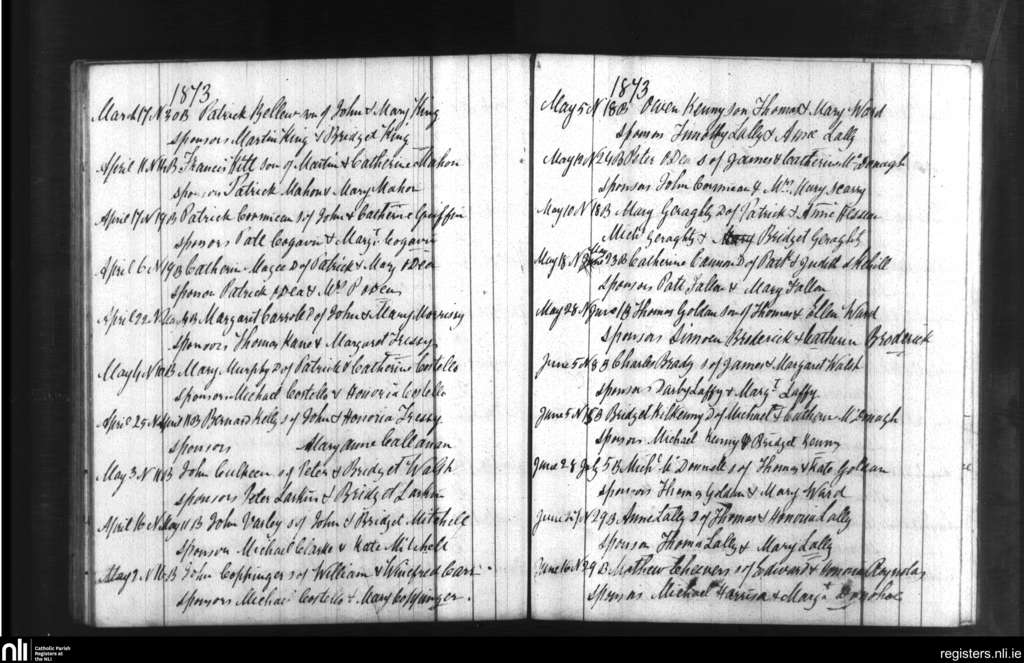 1873
March 17 N 30 B Patrick Bellew son of John & Mary King
sponsors Martin King & Bridget King
April 11 N 14 B Francis Kitt son of Martin & Catherine Mahon
sponsors Patrick Mahon & Mary Mahon
April 17 N 19 B Patrick Cormican s of John & Catherine Griffin
sponsors Patt Cogavin & Margt Cogavin
April 6 N 19 B Catherin Magee D of Patrick & Mary ODea
sponsors Patrick ODea & Mrs P ODea
April 22 N B Margaret Carroll D of John & Mary Morrissy
sponsors Thomas Kane & Margaret Tressy
May 4 N 10 B Mary Murphy D of Patrick & Catherine Costello
sponsors Michael Costello & Honoria Costello
April 25 N B Bernard Kelly s of John & Honoria Tressy
sponsors Mary anne Callanan
May 3 N 11 B John Culkeen s of Peter & Bridget Walsh
sponsors Peter Larkin & Bridget Larkin
April 16 N May 11 B John Varley s of John & Bridget Mitchell
sponsors Michael Clarke & Kate Mitchell
May 2 N 16 B John Coppinger s of William & Winefred Carr
sponsors Michael Costello & Mary Coppinger.
1873
May 5 N 18 B Owen Kenny son Thomas & Mary Ward
sponsors Timothy Lally & Anne Lally
May 14 N 24 B Peter ODea s of James & Catherine McDonagh
sponsors John Cormican & Mrs Mary
May 10 N 18 B Mary Geraghty D of Patrick & Anne Hessian
Michl Geraghty & Bridget Geraghty
May 18 N 23 B Catherine Cannon D of Patk & Judith
Sponsors Patt Fallon & Mary Fallon
May 28 N June 1 B Thomas Goldan son of Thomas & Ellen Ward
Sponsors Simeon Broderick & Catherin Broderick
June 5 N 8 B Charles Brady s of James & Margaret Walsh
sponsors Darby Laffy & Margt Laffy
June 5 N 15 B Bridget Kilkenny D of Michael & Catherine McDonagh
Sponsors Michael Kenny & Bridget Kenny
June 28 July 5 B Michl McDonnell s of Thomas & Kate Goldan
sponsors Thomas Goldan & Mary Ward
June 27 N 29 B Anne Lally D of Thomas & Honoria Lally
Sponsors Thomas Lally & Mary Lally
June 16 N 29 B Mathew Cheevers s of Edward & Honoria Reynolds
Sponsors Michael Harrison & Margt Donohoe
nli
Catholic Parish
Registers at
the NLI
registers.nli.ie